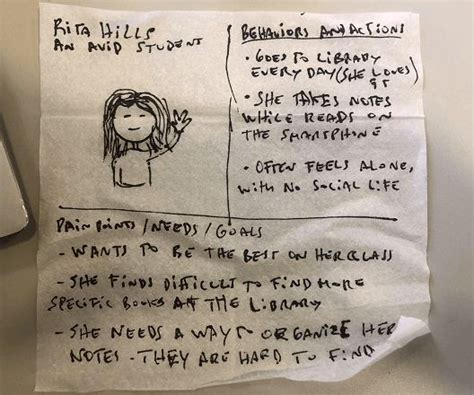 RITA HILLS
AN AVID STUDENT
BEHAVIORS AND ACTIONS
• GOES TO LIBRARY
EVERY DAY (SHE LOVES)
IT
• SHE TAKES NOTES
WHILE READS ON
THE SMARTPHONE
• OFTEN FEELS ALONE,
WITH NO SOCIAL LIFE
PAIN POINTS / NEEDS / GOALS
- WANTS TO BE THE BEST ON HER CLASS
- SHE FINDS DIFFICULT TO FIND MORE
SPECIFIC BOOKS AT THE LIBRARY
- SHE NEEDS A WAY TO ORGANIZE HER
NOTES - THEY ARE HARD TO FIND